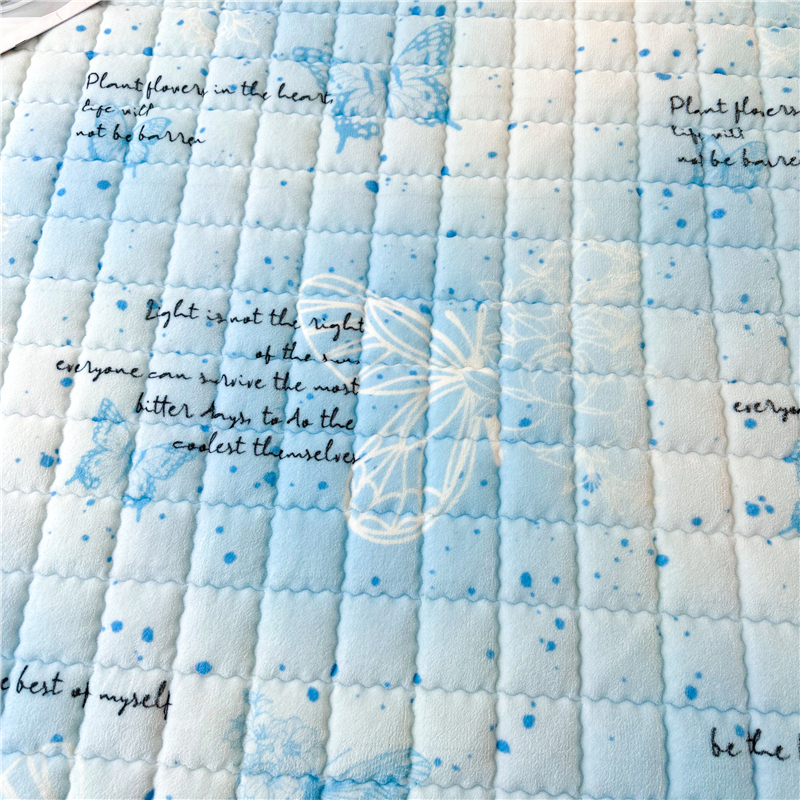 Plant flowers in the heart,
life will
not be barren
Plant flowers
life will
not be barren
Light is not the right
of the sun,
everyone can survive the most
bitter days, to do the
coolest themselves
everyo
e best of myself
be the